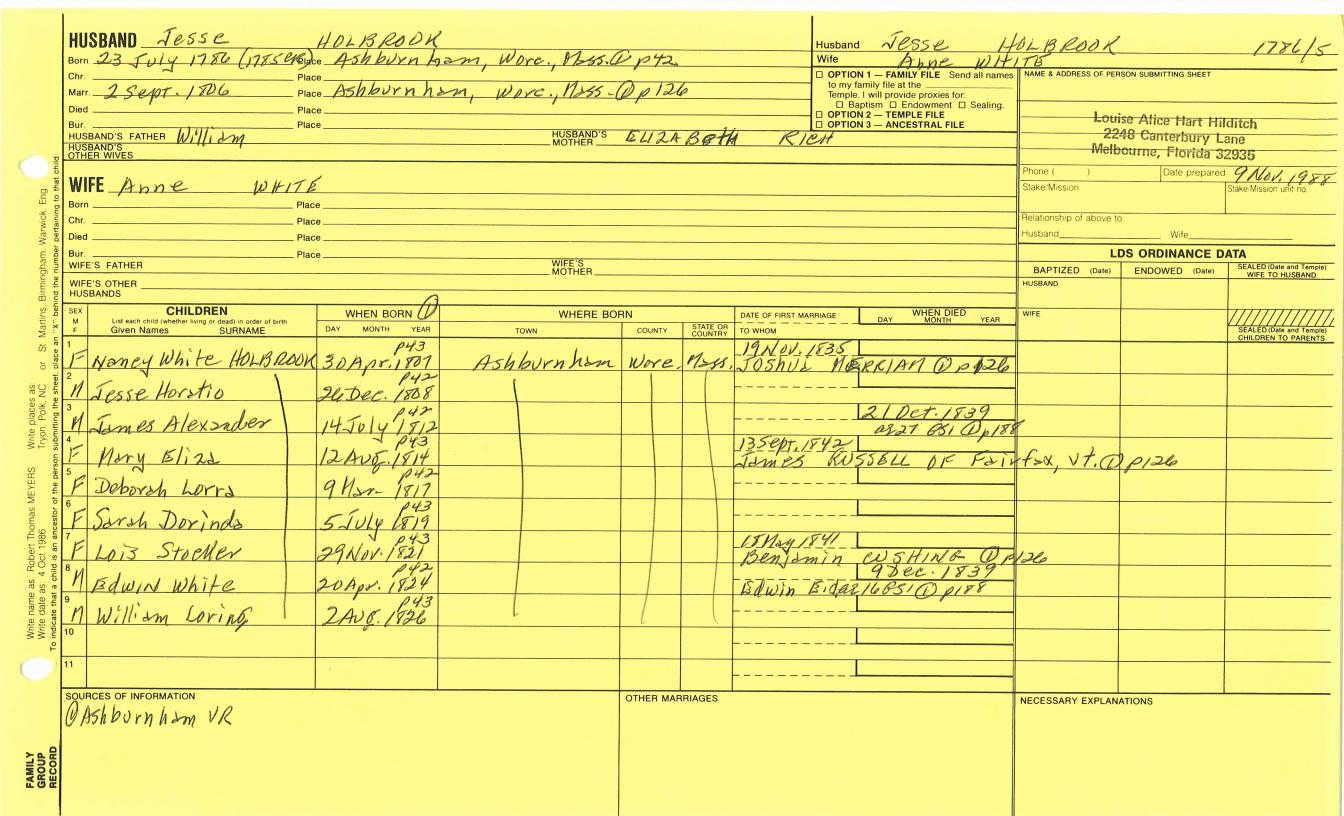 HUSBAND Jesse HOLBROOK
Born 23 July 1786 (1785 Place Ashburnham, Worc., Mass. ① p42
Chr. Place
Marr. 2 Sept. 1806 Place Ashburnham, Worc., Mass - ① p126
Died Place
Bur. Place
HUSBAND'S FATHER William HUSBAND'S MOTHER ELIZABETH RICH
HUSBAND'S OTHER WIVES
Husband Jesse HOLBROOK 1786/5
Wife Anne WHITE
☐ OPTION 1 — FAMILY FILE Send all names
to my family file at the
Temple. I will provide proxies for:
☐ Baptism ☐ Endowment ☐ Sealing.
☐ OPTION 2 — TEMPLE FILE
☐ OPTION 3 — ANCESTRAL FILE
NAME & ADDRESS OF PERSON SUBMITTING SHEET
Louise Alice Hart Hilditch
2248 Canterbury Lane
Melbourne, Florida 32935
Phone ( ) Date prepared 9 Nov. 1988
Stake/Mission Stake/Mission unit no.
Relationship of above to
Husband Wife
WIFE Anne WHITE
Born Place
Chr. Place
Died Place
Bur. Place
WIFE'S FATHER WIFE'S MOTHER
WIFE'S OTHER HUSBANDS
LDS ORDINANCE DATA
BAPTIZED (Date) ENDOWED (Date) SEALED (Date and Temple) WIFE TO HUSBAND
HUSBAND
WIFE
SEALED (Date and Temple) CHILDREN TO PARENTS
SEX M F CHILDREN WHEN BORN ① WHERE BORN DATE OF FIRST MARRIAGE WHEN DIED
List each child (whether living or dead) in order of birth
Given Names SURNAME DAY MONTH YEAR TOWN COUNTY STATE OR COUNTRY TO WHOM DAY MONTH YEAR
1 p43 19 Nov. 1835
F Nancy White HOLBROOK 30 Apr. 1807 Ashburnham Worc. Mass. JOSHUA MERRIAM ① p126
2 p42
M Jesse Horatio 26 Dec. 1808
3 p42 21 Oct. 1839
M James Alexander 14 July 1812 ae 27 GS1 ① p188
4 p43 13 Sept. 1842
F Mary Eliza 12 Aug. 1814 James RUSSELL OF Fairfax, Vt. ① p126
5 p42
F Deborah Lorra 9 Mar- 1817
6 p43
F Sarah Dorinda 5 July 1819
7 p43 18 May 1841
F Lois Stocker 29 Nov. 1821 Benjamin CUSHING ① p126
8 p42 9 Dec. 1839
M Edwin White 20 Apr. 1824 Edwin GS1 ① p188
9 p43
M William Loring 2 Aug. 1826
10
11
SOURCES OF INFORMATION
① Ashburnham VR
OTHER MARRIAGES
NECESSARY EXPLANATIONS
Write name as Robert Thomas MEYERS Write places as Tryon, Polk, NC or St Martins, Birmingham, Warwick, Eng.
Write date as 4 Oct 1986
To indicate that a child is an ancestor of the person submitting the sheet, place an "X" behind the number pertaining to that child
FAMILY
GROUP
RECORD